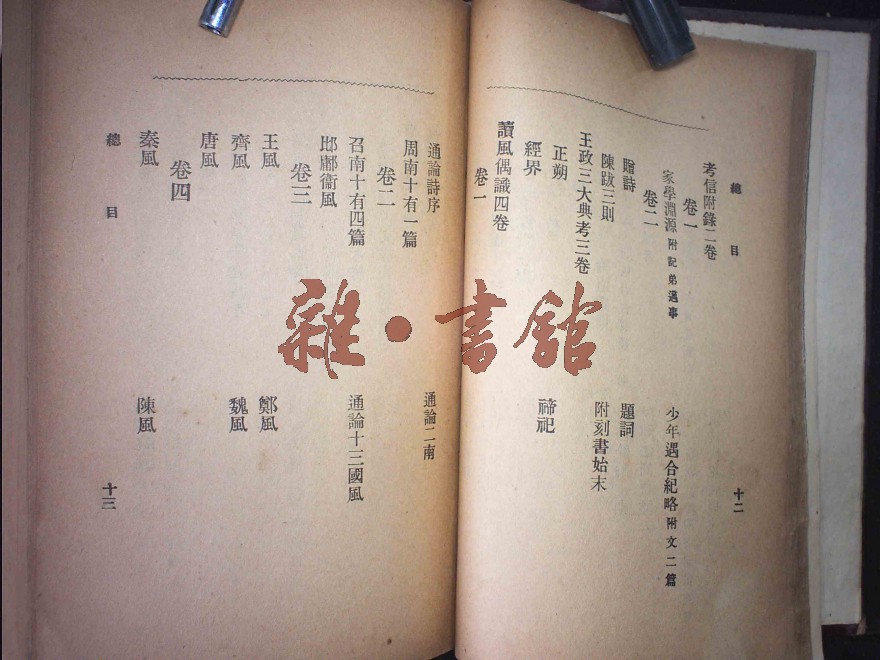 總目
十二
考信附錄二卷
卷一
家學淵源 附記弟邁事
少年遇合紀略 附文二篇
卷二
贈詩
題詞
陳跋三則
附刻書始末
王政三大典考三卷
正朔
禘祀
經界
讀風偶識四卷
卷一
通論詩序
通論二南
周南十有一篇
卷二
召南十有四篇
通論十三國風
邶鄘衞風
卷三
王風
鄭風
齊風
魏風
唐風
卷四
秦風
陳風
總目
十三
雜·書館